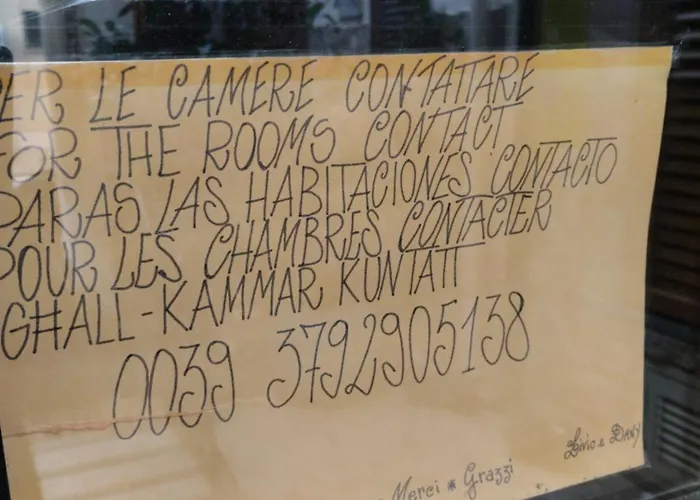 ER LE CAMERE CONTATTARE
FOR THE ROOMS CONTACT
PARAS LAS HABITACIONES CONTACTO
POUR LES CHAMBRES CONTACTER
GĦALL-KAMMAR KUNTATT
0039 3792905138
Livio e Dany
Merci * Grazzi